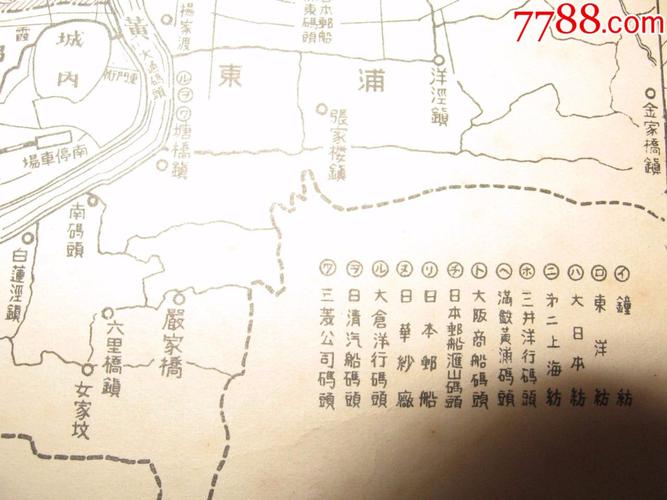 7788.com
霞
城內
東門街
黃
大通碼頭
楊家渡
日本郵船
東碼頭
ル
ヲ
ワ
塘橋鎮
東
浦
洋涇鎮
張家楼鎮
金家橋鎮
南停車場
南碼頭
白蓮涇鎮
六里橋鎮
嚴家橋
女家坟
イ 鐘紡
ロ 東洋紡
ハ 大日本紡
ニ 才二上海紡
ホ 三井洋行碼頭
ヘ 滿鉄黃浦碼頭
ト 大阪商船碼頭
チ 日本郵船滙山碼頭
リ 日本郵船
ヌ 日華紗廠
ル 大倉洋行碼頭
ヲ 日清汽船碼頭
ワ 三菱公司碼頭